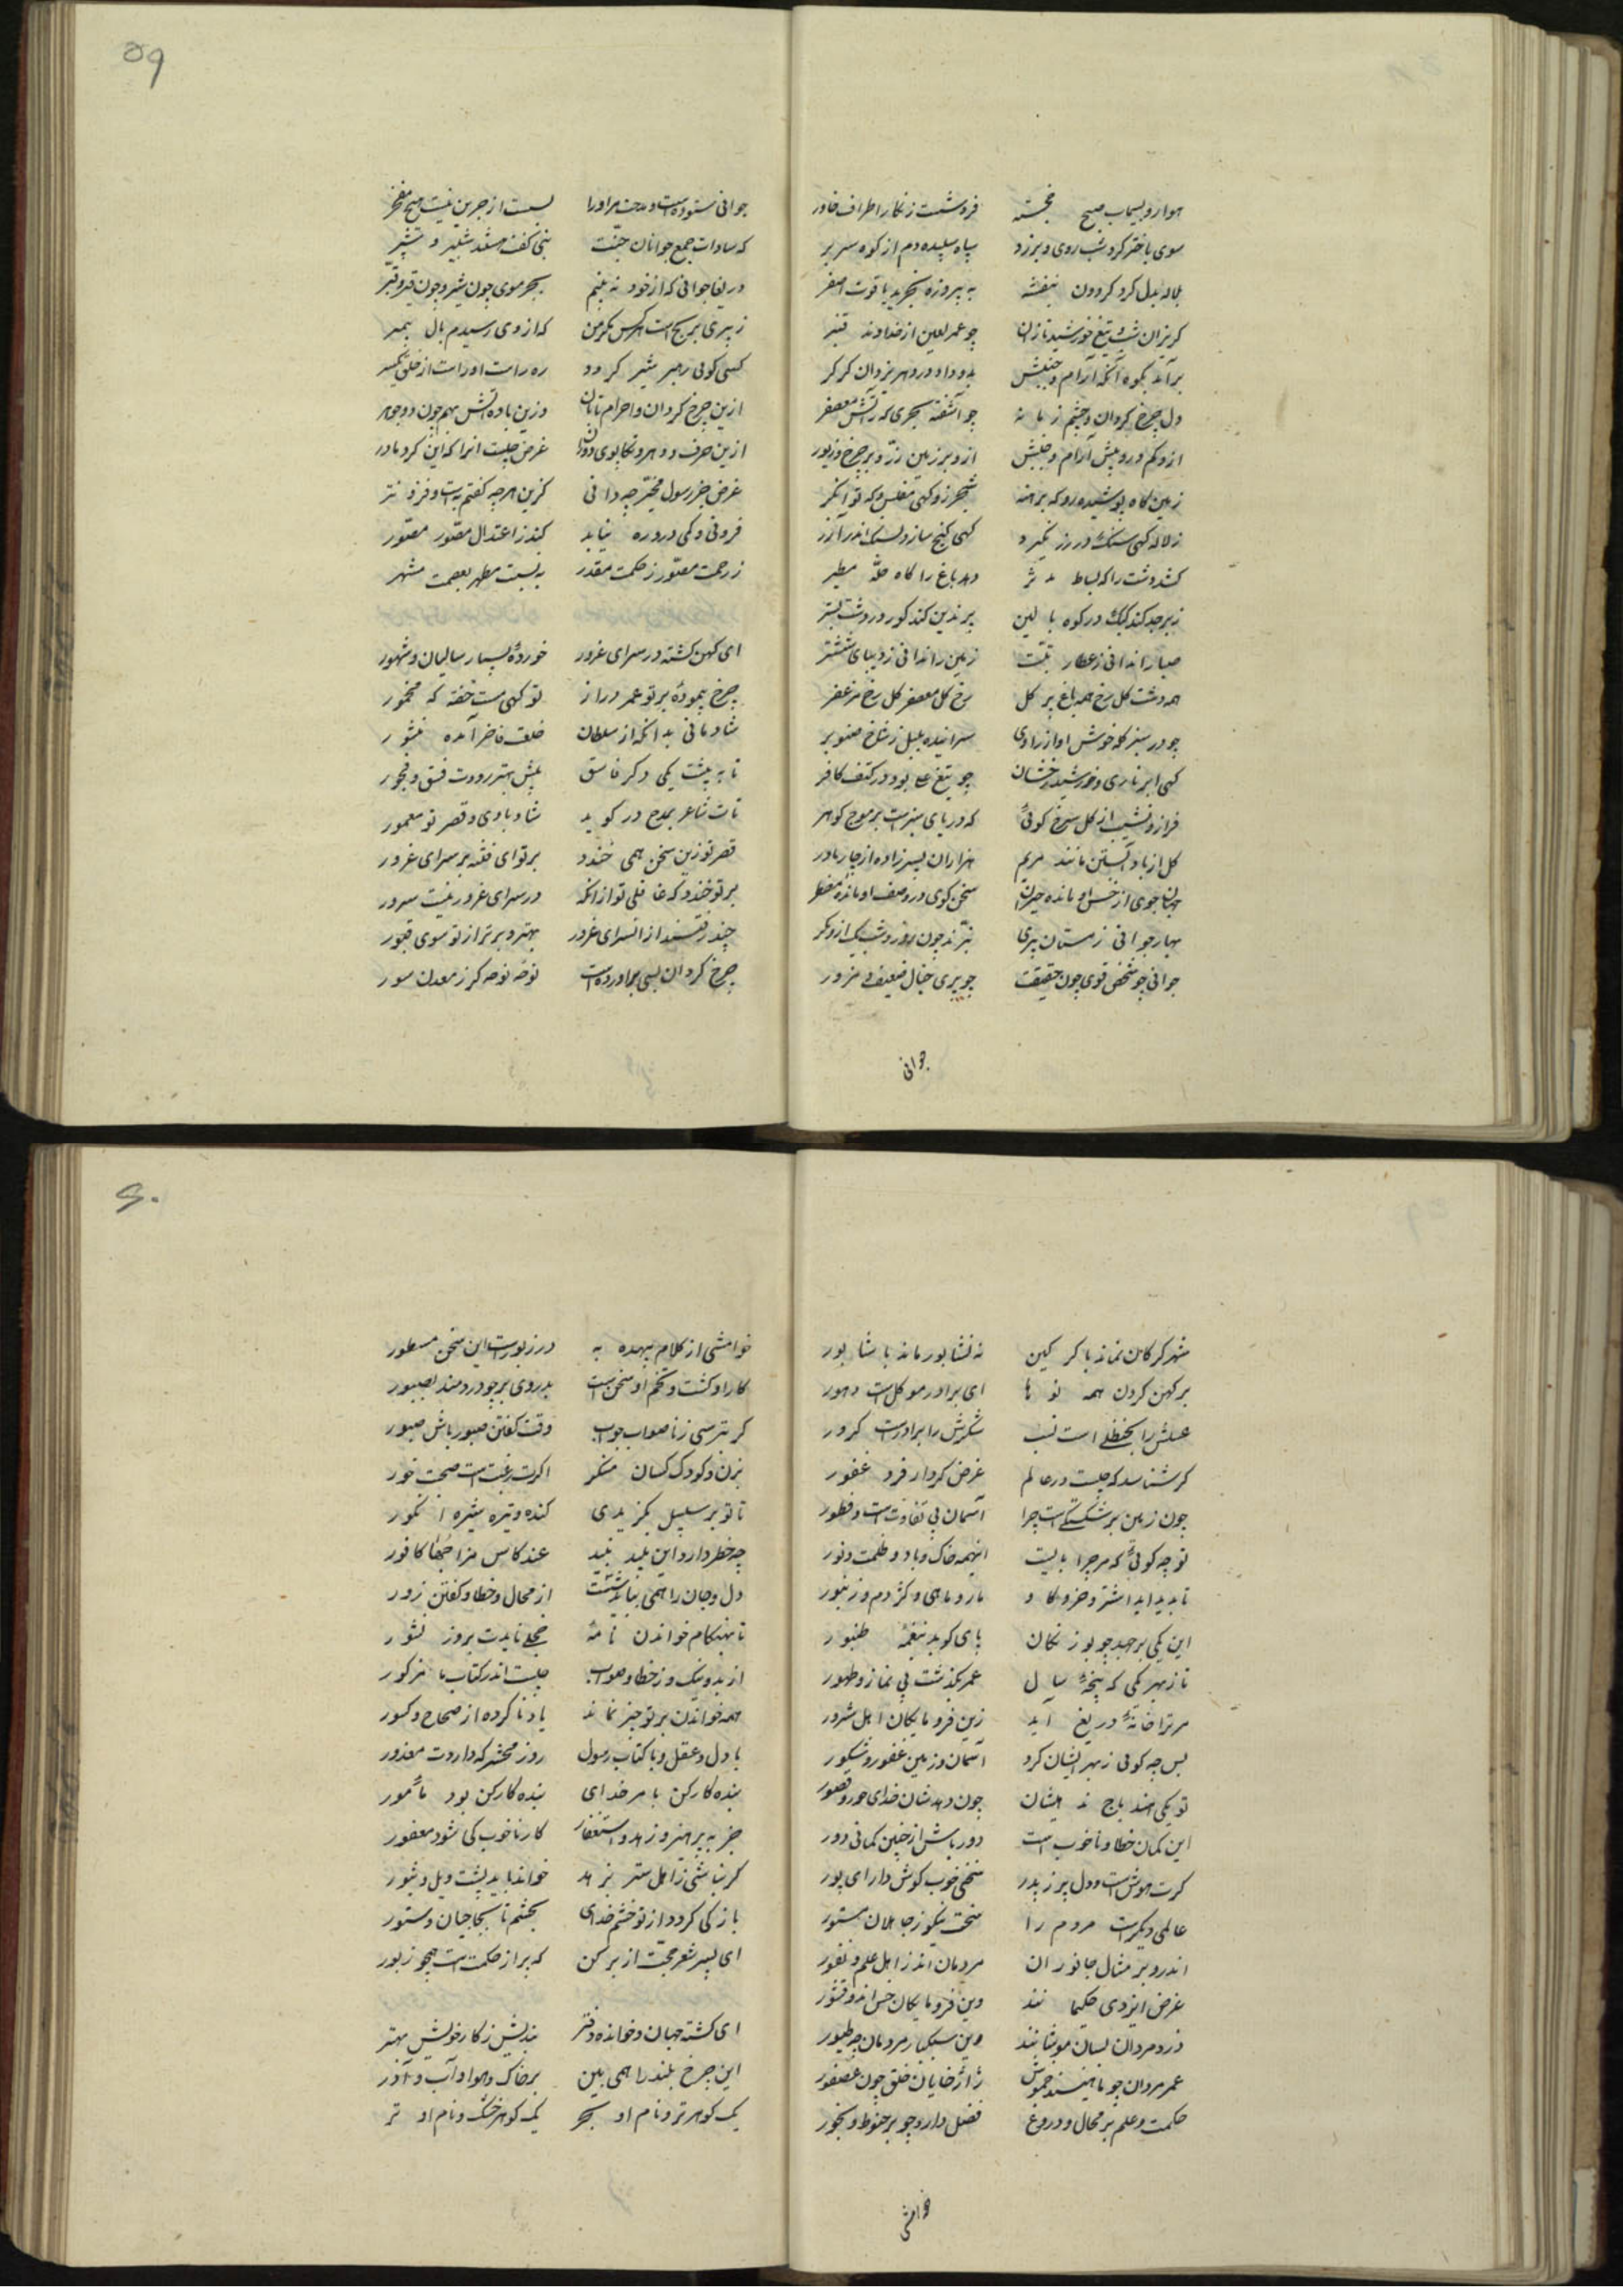 هوا رو بسیماب صبح خجسته فروشست زنکار اطراف خاور
سوی باختر کرد شب روی و برزد سپاه سپیده دم از کوه سر بر
بلاله بدل کرد کردون بنفشه به بیروزه بخرید یاقوت اصفر
کریزان شب و تیغ خورشید تازان چو عمر لعین از خداوند قنبر
برآید بکوه آنکه آرام و جنبش بدو داد در دهر یزدان کرکر
دل چرخ کردان و چشم زمانه چو آشفته بحری که آتش معصفر
ازو کم و بیش آرام و جنبش ازو بر زمین زر و بر چرخ زیور
زمین کاه پوشیده رو که برهنه شجر زو کهی مفلس و که توانکر
ز لاله کهی سنک در زر نکیرد کهی کنج سازد لسک اندر آزر
کشد دشت را که بساط مدثر دهد باغ را کاه حله مطیر
زبرجد کند کبک در کوه بالین پرندین کند کور در دشت بستر
صبا را ندانی ز عطار تبت زمین را ندانی ز دیبای ششتر
همه دشت کل رخ همه باغ پر کل رخ کل معصفر کل رخ مزعفر
چو در سبز کله خوش آواز راوی سراینده بلبل ز شاخ صنوبر
کهی ابر تاری و خورشید رخشان چو تیغ علی بود در کتف کافر
فراز و نشیب از کل سرخ کوئی که دریای سبزست پر موج کوهر
کل از باد آبستن مانند مریم هزاران پسر زاده از چار مادر
جهانجوی از حسن او مانده حیران سخن کوی در وصف او مانده مضطر
بهار جوانی زمستان پیری نترند چون روز و شب یک ازو کر
جوانی چو شخص قوی چون حقیقت چو پیری خیال ضعیف مزور
جوانی
۵۹
جوانی ستوده است و مدحت مر او را بسست از جرین نیست هیچ مفخر
که سادات جمع جوانان جنت نبی کفت هستند شبیر و شبر
دریغا جوانی که از خود نه بینم بجز موی چون شیر و چون قیر و قیر
ز پیری برنج است هر کس مکر من که از وی رسیدم بآل پیمبر
کسی کوئی رهبر شبر کردد ره راست او راست از خلق یکسر
ازین چرخ کردان و اجرام تابان وزین باد و آتش بهم چون دو جوهر
ازین حرف و دهر و تکاپوی دوران غرض چیست آنرا که این کرد مادر
غرض جز رسول مخیر چه دانی کزین هرچه کفتم به است و فزونتر
فزونی و کمی درو ره نیابد که بذ ز اعتدال مصور مصور
ز رحمت مصور ز حکمت مقدر به نسبت مطهر بعصمت مشهر
ای کهن کشته در سرای غرور خورده بسیار سالیان و شهور
چرخ پیموده بر تو عمر دراز تو کهی مست خفته که مخمور
شادمانی بدانکه از سلطان خلعت فاخر آمده منشور
تا به پیشت یکی دکر فاسق پیش بهتر رود ت فسق و فجور
تات شاعر بمدح در کوید شاد بادی و قصر تو معمور
قصر تو زین سخن همی خندد بر تو ای فتنه بر سرای غرور
بر تو خندد که غافلی تو از آنکه در سرای غرور نیست سرور
چند رفتند از آنسرای غرور بهتر و برتر از تو سوی قبور
چرخ کردان بسی براورده است نوحه نوحه کر ز معدن سور
شهر کرکان نماند با کرکین نه نشابور ماند با شابور
بر کهن کردن همه نوها ای برادر موکلست دهور
عسلش را بحنظل است نسب شکرش را برادرست کرور
کر شناسد که چیست در عالم غرض کردکار فرد غفور
چون زمین بر شکستکیست چرا آسمان بی تفاوتست و فطور
تو چه کوئی که مر چرا بایست اینهمه خاک و باد و ظلمت و نور
تا پدید آید اشتر و خر و کاو مار و ماهی و کژدم و زنبور
این یکی برجهد چو بوزنکان پای کوبد بنغمه طنبور
باز بهر یکی که پنجه سال عمر بکذشت بی نماز و طهور
مر ترا خانه دریغ آید زین فرومایکان اهل شرور
پس چه کوئی ز بهر ایشان کرد آسمان و زمین غفور و شکور
تو یکی خند باج ندهیشان چون دهدشان خدای حور و قصور
این کمان خطا و ناخوب است دور باش از چنین کمانی دور
کرت هوش است و دل پیر ز پدر سخنی خوب کوش دار ای پور
عالمی دیکرست مردم را سخت نیکو ز جاهلان مستور
اندرو بر مثال جانوران مردمان اند ز اهل علم و نفور
غرض ایزدی حکیمانند وین فرومایکان خس اند و قشور
دزد مردان بسان موشانند وین سبکبار مردمان چو طیور
عمر مردان چو ماهیند خموش ژاژخایان خلق چون عصفور
حکمت و علم بر محال و دروغ فضل دارد چو بر حنوط و بخور
خوامشی
۶۰
خوامشی از کلام بیهده به در زبورست این سخن مسطور
کار او کشت و تخم او سخن است بدروی بر چو دردمند بصبور
کر بترسی ز ناصواب جواب وقت کفتن صبور باش صبور
بزن و کودک کسان منکر اکرت رغبتست صحبت حور
تا تو بر سلسبیل نکزیدی کنده و تیره شیره انکور
چه خطر دارد این پلید نبید عند کاس مزاجها کافور
دل و جان را همی بباید شست از محال و خطا و کفتن زور
تا بهنکام خواندن نامه خجل نایدت بروز نشور
از بد و نیک وز خطا و صواب چیست اندر کتاب نامذکور
همه خوانند بر تو چیز نماند یاد ناکرده از صحاح و کسور
با دل و عقل و با کتاب رسول روز محشر که داردت معذور
بنده کارکن بامر خدای بنده کارکن بود مأمور
جز به پرهیز و زهد و استغفار کار ناخوب کی شود مغفور
کر نباشی ز اهل ستر بزهد خواند باید پشت ویل و ثبور
بازکی کردد از تو خشم خدای بحشم تا بجاجبان و ستور
ای پسر شعر حجت از بر کن که پر از حکمت است همچو زبور
ای کشته جهان و خوانده دفتر بندیش ز کار خویش بهتر
این چرخ بلند را همی بین بر خاک و هوا و آب و آذر
یک کوهر تر و نام او بحر یک کوهر خشک و نام او بر